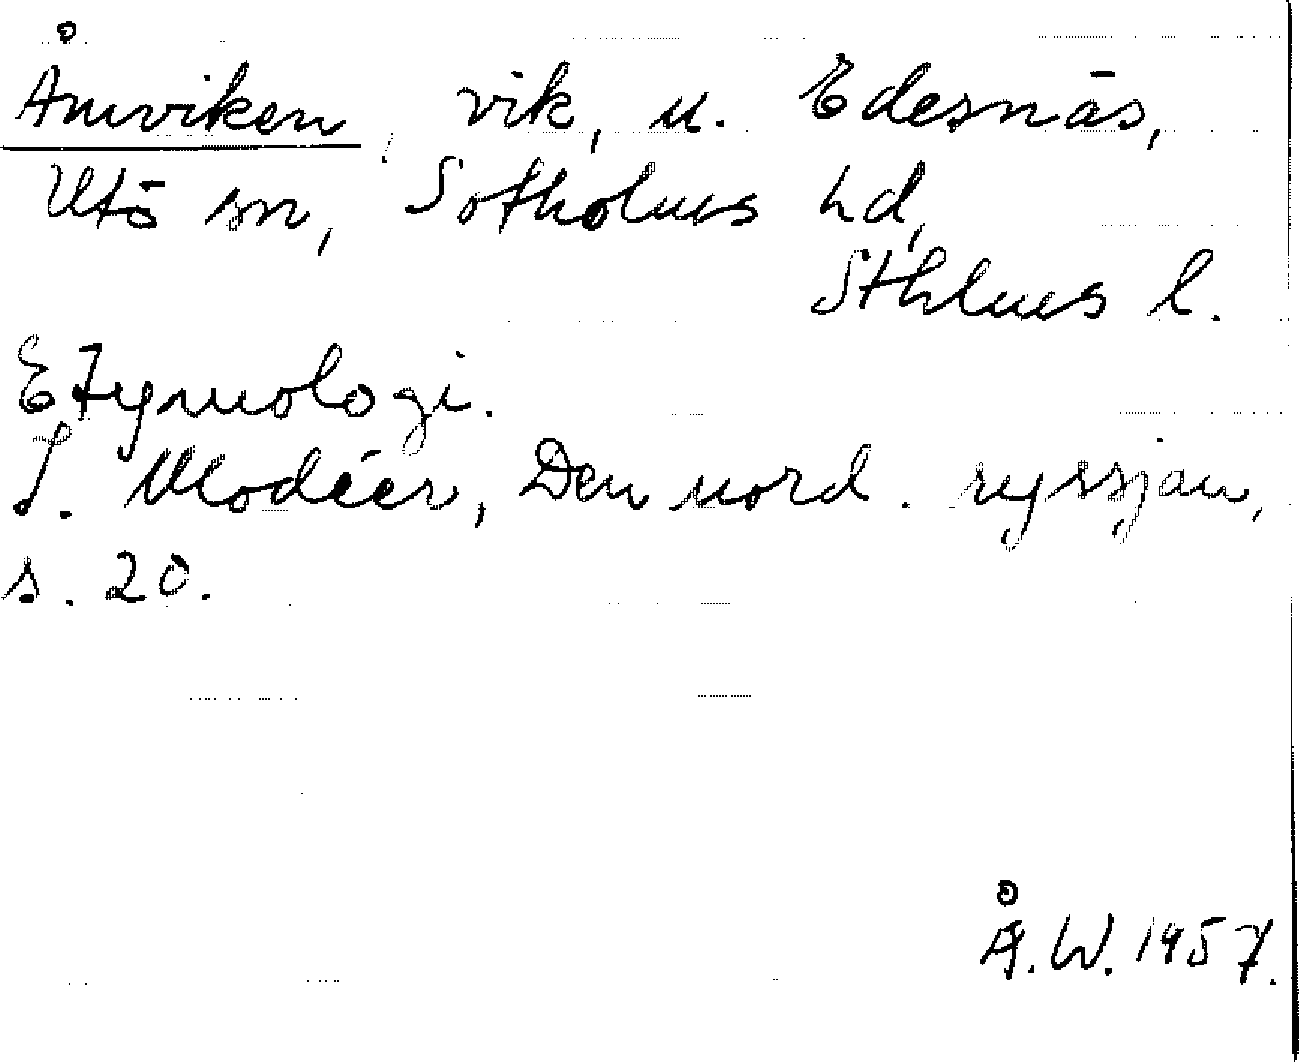 Åmviken, vik, u. Edesnäs,
Utö sn, Sotholms hd,
Sthlms l.
Etymologi.
I. Modéer, Den nord. ryssjan,
s. 20.
Å.W. 1957.